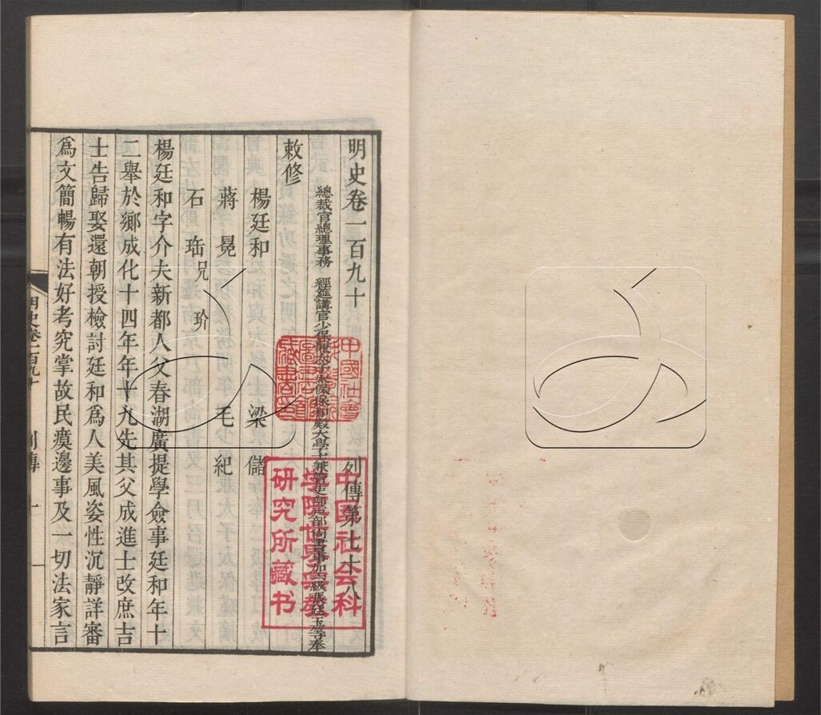 明史卷一百九十 列傳第七十八
總裁官總理事務 經筵講官少保兼太子太保保和殿大學士兼管吏部戶部尚書事加六級張廷玉等奉
敕修
楊廷和 梁儲
蔣冕 毛紀
石珤 兄玠
楊廷和字介夫新都人父春湖廣提學僉事廷和年十
二舉於鄉成化十四年年十九先其父成進士改庶吉
士告歸娶還朝授檢討廷和為人美風姿性沉靜詳審
為文簡暢有法好考究掌故民瘼邊事及一切法家言
明史卷一百九十 列傳 一
中國社會科
學院世界宗教
研究所藏书